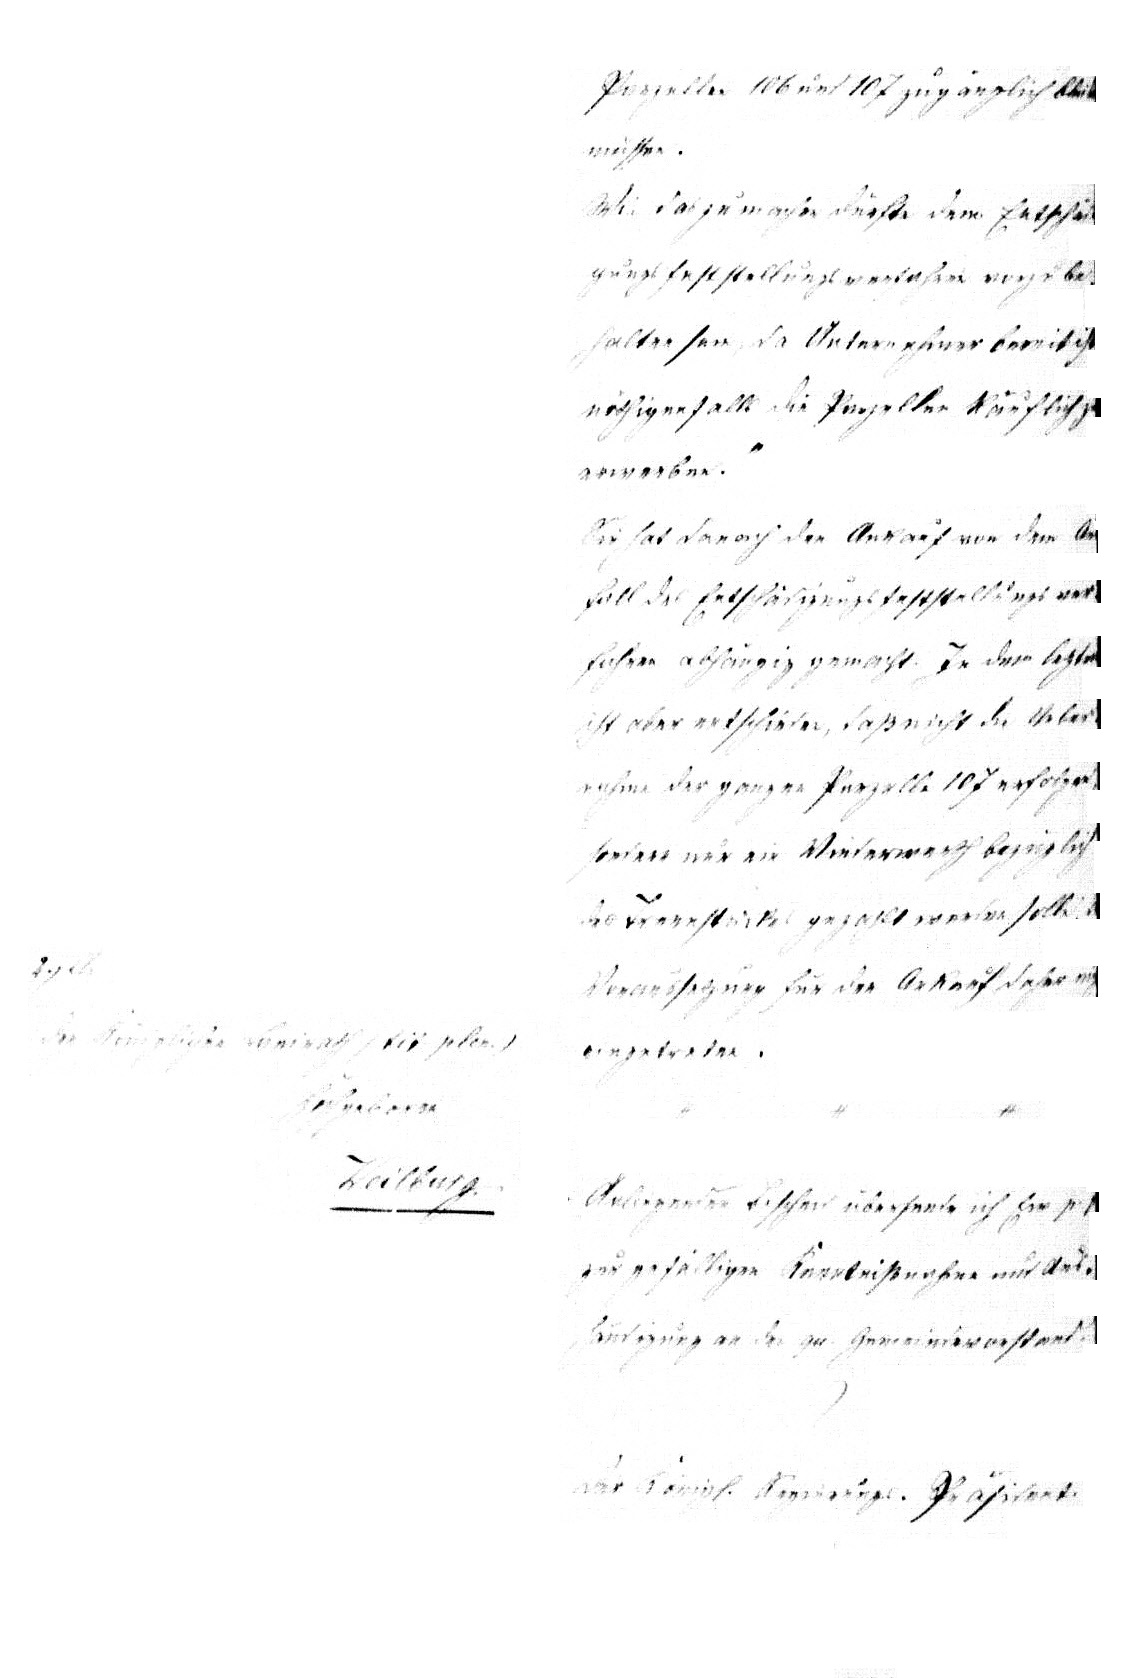 Parzellen 106 und 107 zugänglich
müssen.
Wie das zu machen dürfte dem Entschädi-
gungsfeststellungsverfahren vorzube-
halten sein, da Unternehmer bereit ist
nöthigenfalls die Parzellen käuflich zu
erwerben."
Sie hat danach den Ankauf von dem
fall des Entschädigungsfeststellungsver-
fahren abhängig gemacht. In dem letzten
ist aber entschieden, daß nicht die Ueber-
nahme der ganzen Parzelle 107 erfolgen
sondern nur ein Minderwerth bezüglich
des Trennstückes gezahlt werden sollte
Voraussetzung für den Ankauf daher
eingetreten.
2.
den Königlichen
Hochgeboren
Weilburg.
Anliegenden übersende ich
zur gefälligen Kenntnißnahme und Aus-
händigung an den Gemeindevorstand.
Der Königl. Regierungs-Präsident.